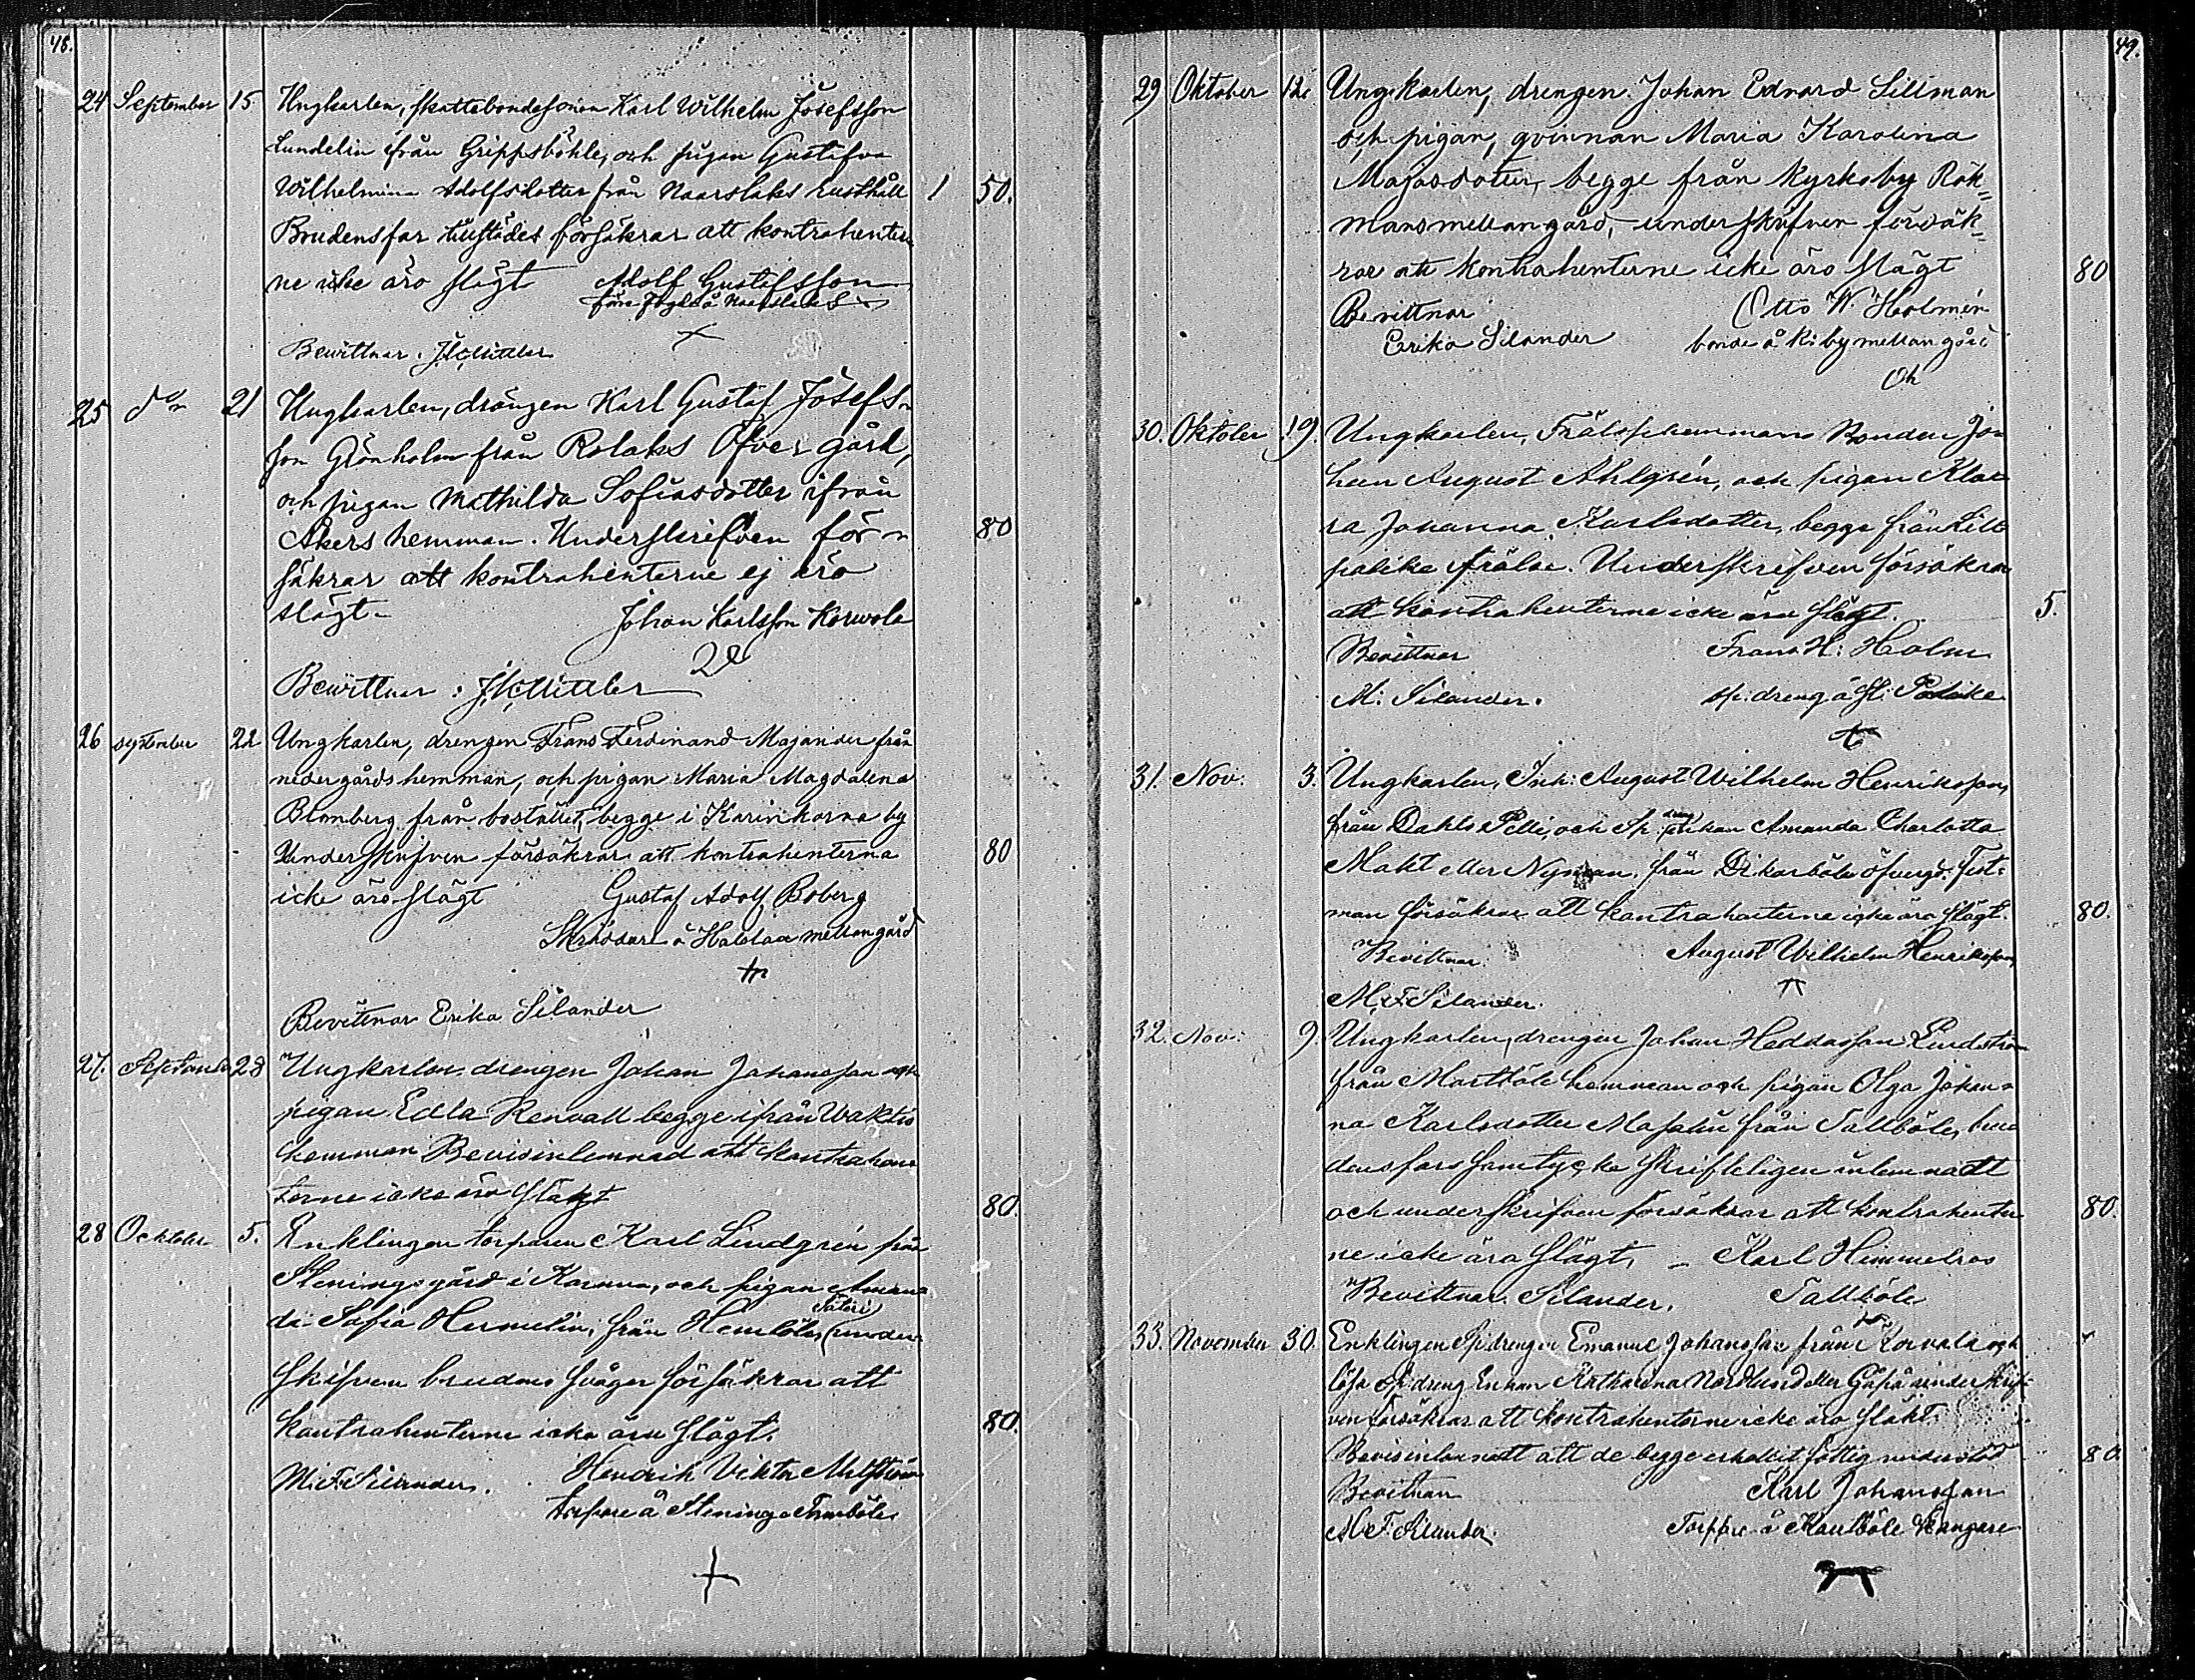 48.
24 September 15. Ungkarlen, skattebondesonen Karl Wilhelm Josefsson
Lundelin från Grippsböhle, och pigan Gustafva
Wilhelmina Adolfsdotter från Naarslaks Rusthåll 1 50.
Brudens far tillstädes försäkrar att kontrahenter
ne icke äro slägt Adolf Gustafsson
Bewittnar. 
25 d:o 21 Ungkarlen, drängen Karl Gustaf Josefs-
son Grönholm från Rolaks Öfvergård,
och pigan Mathilda Sofiasdotter ifrån
Åkers hemman. Underskrifven för- 80
säkrar att kontrahenterne ej äro
slägt- Johan Karlsson Korwola
Bewittnar: 
26 september 22 Ungkarlen, drengen Frans Ferdinand Majander från
nedergårds hemman, och pigan Maria Magdalena
Blomberg från bostället, begge i Karinkorna by
Underskrifven försäkrar att kontrahenterna 80
icke äro slägt Gustaf Adolf Boberg
Skräddare å Haldaa mellangård
Bevittnar Erika Silander
27. September 28 Ungkarlen, drengen Johan Johansson och
pigan Edla Renvall begge ifrån Waktis
hemman Bevis inlemnad att kontrahen
terne icke äro slägt 80.
28 Ocktober 5. Enklingen torparen Karl Lindgrén från
Stenings gård i Karuna, och pigan Aman
da Sofia Hurmelin, från Hemböle Säteri (under-
skifven brudens svåger försäkrar att
kontrahenterne icke äro slägt. 80.
M. F. Silander. Hendrik Viktor
torpare å Steninge
49.
29 Oktober 12. Ungkarlen, drengen Johan Edvard Sillman
och pigan, qvinnan Maria Karolina
Majasdotter, begge från Kyrkoby Rök=
mans mellangård, underskrifven försäk=
rar att kontrahenterne icke äro slägt 80
Bevittnar Otto W. Holmén
Erika Silander bonde å K:by mellangård
30. Oktober 19. Ungkarlen, Frälsehemmans Bonden Jo
han August Ahlgrén, och pigan Kla
ra Johanna Karlsdotter, begge från Lill
palike frälse. Underskrifven försäkrar
att kontrahenterne icke äro slägt. 5.
Bevittnar Frans H: Holm
M: Silander. sp. dreng å
31. Nov: 3. Ungkarlen, Inh: August Wilhelm Henriksson,
från Dahls Pelli, och Sp. dreng enkan Amanda Charlotta
Makt eller Nyman, från Dikarböle öfvergd. Fest=
man försäkrar att kontrahenterne icke äro slägt. 80.
Bevittnar August Wilhelm Henriksson
M. F. Silander.
32. Nov: 9. Ungkarlen, drengen Johan Heddasson Lindström
från Martböle hemman och pigan Olga Johan-
na Karlsdotter från Tallböle, bru
dens fars samtycke skrifteligen inlemnadt
och underskrifven försäkrar att kontrahenter 80.
ne icke äro slägt, – Karl Himmelros
Bevittnar. Silander. Tallböle
33. November 30. Enklingen Spdrengen Emanuel Johansson från Korvala och
lösa Sp dreng Enkan Katharina Nordlund eller underskrif
ven försäkrar att kontrahenterne icke äro släkt.
Bevis inlemnadt att de begge erhållit fattig understöd 80
Bevittnar Karl Johansson
M. F. Silander. Torppare å